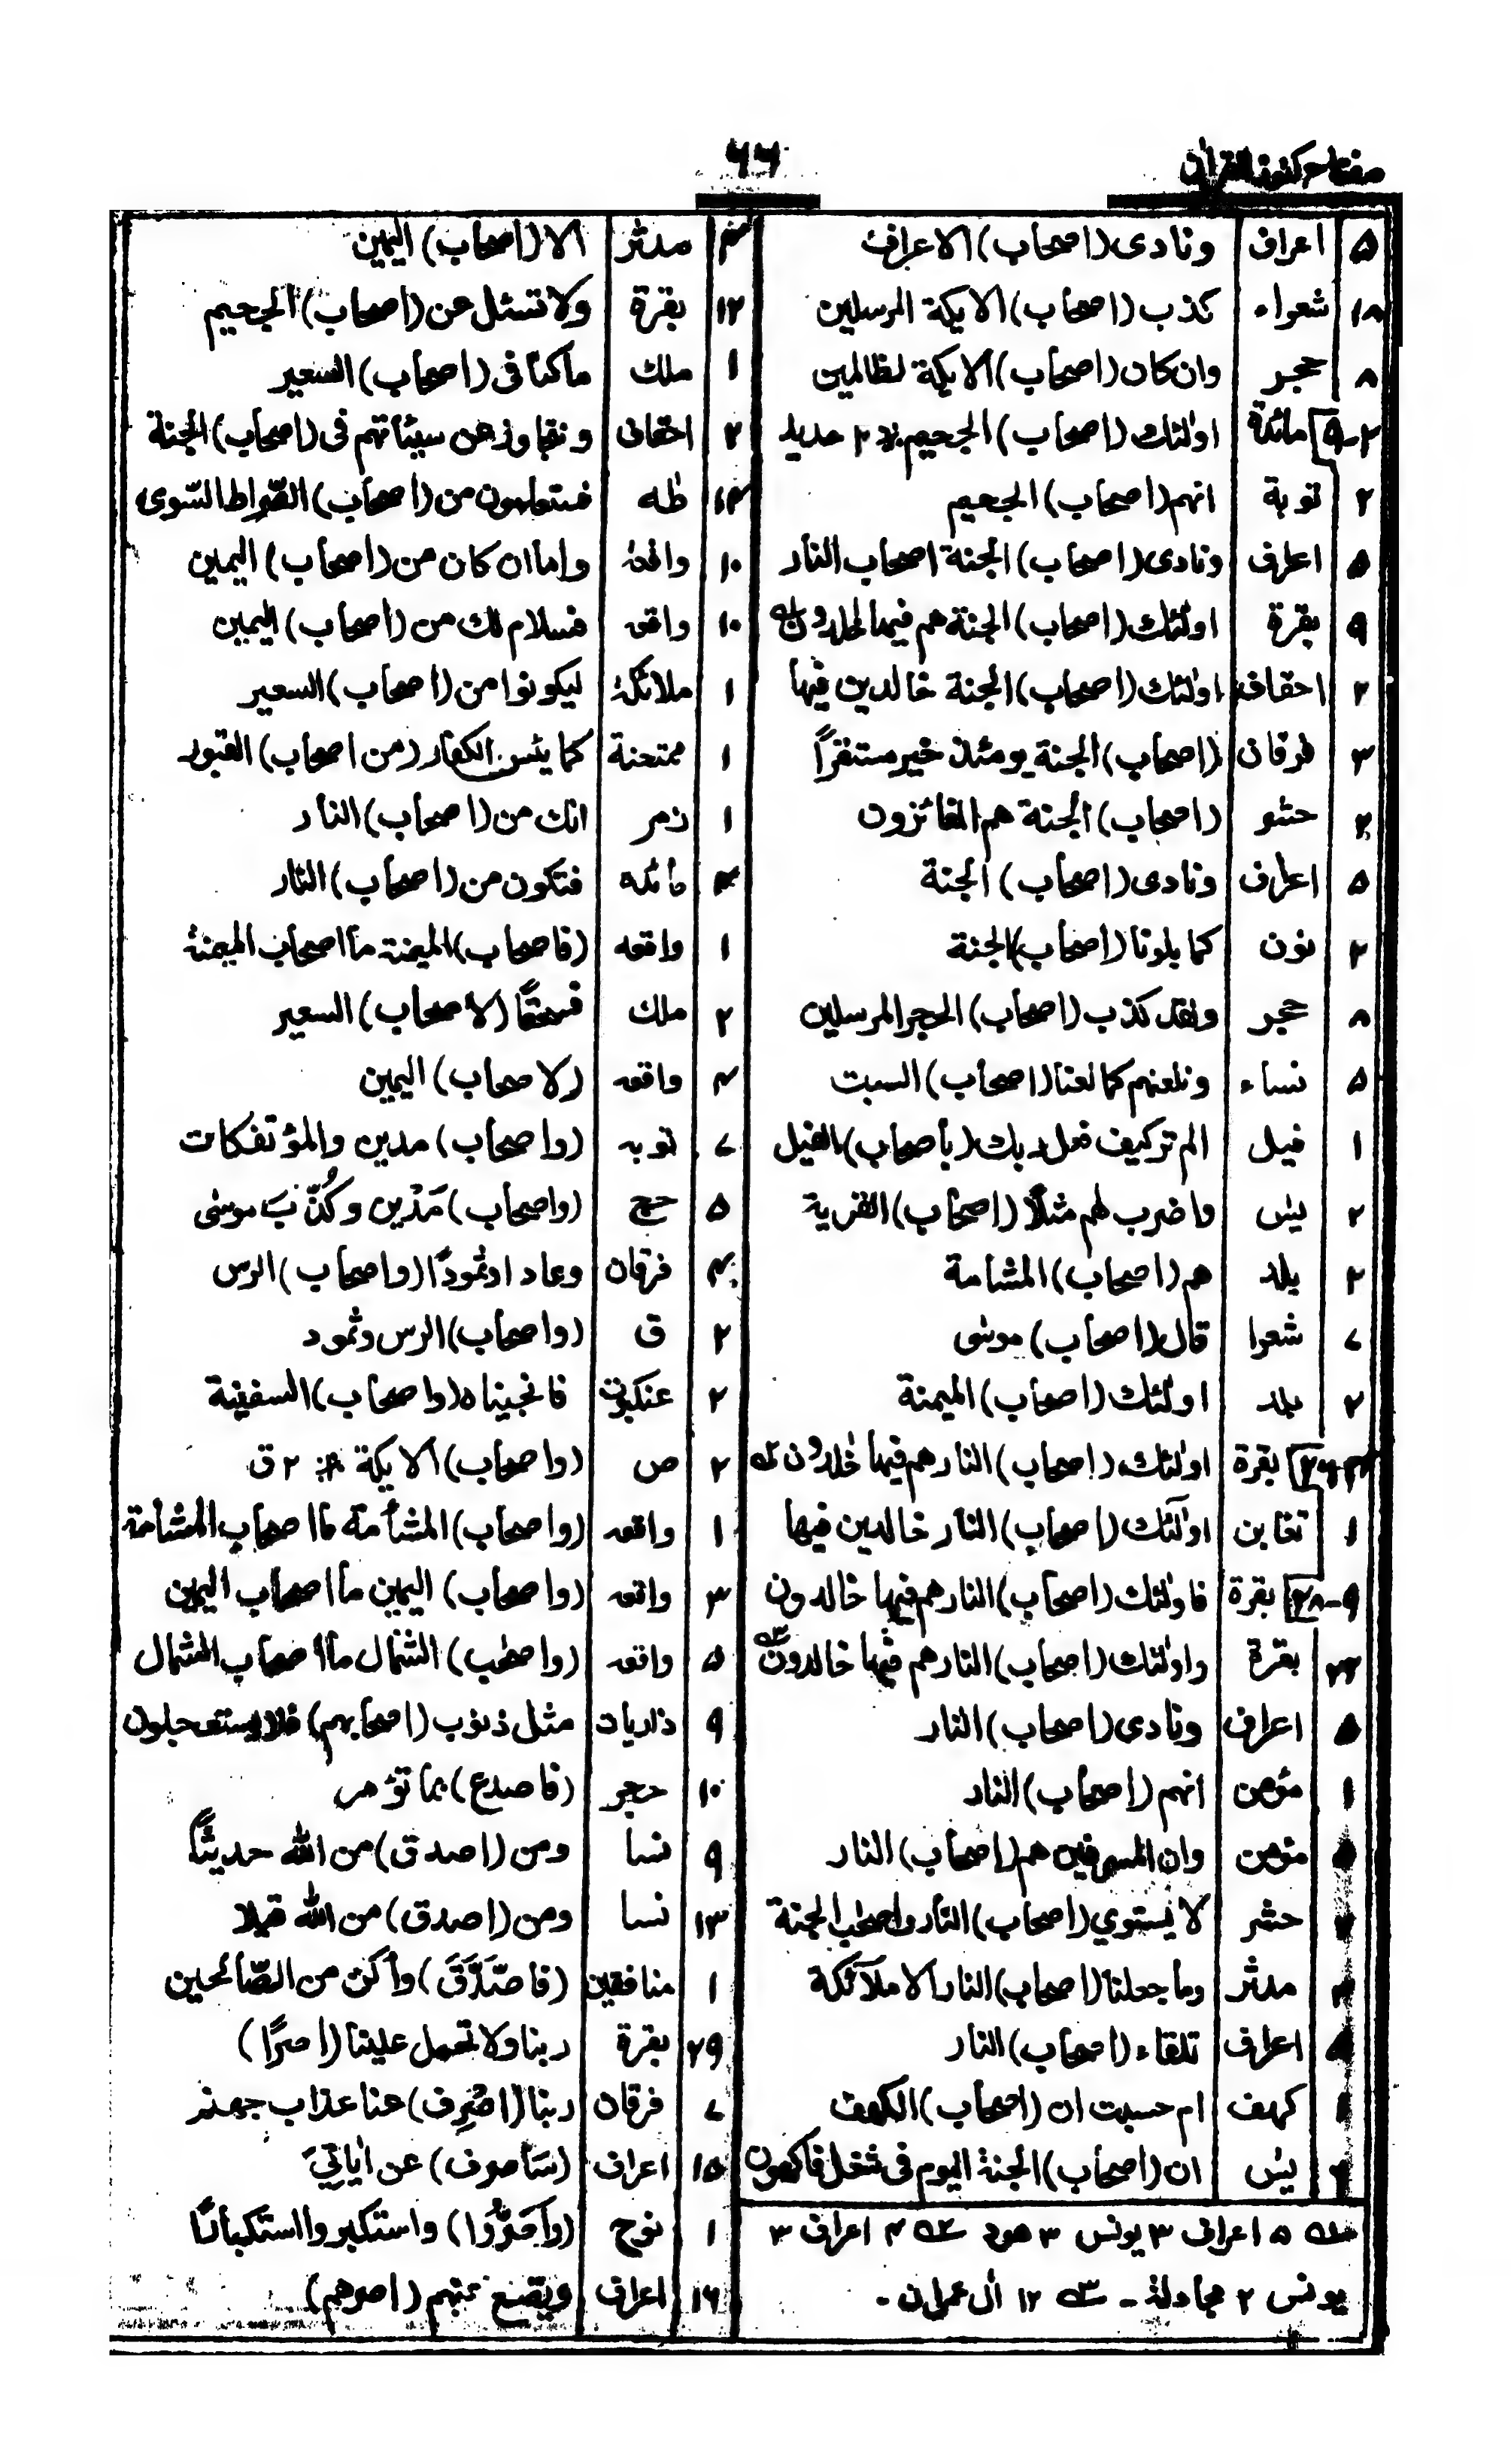 مفتاح كنوز القرآن
٦٦
٥ اعراف ونادى (اصحاب) الاعراف
١٨ شعراء كذب (اصحاب) الايكة المرسلين
٨ حجر وان كان (اصحاب) الايكة لظالمين
٢-٩ مائدة اولٰئك (اصحاب) الجحيم ٢ حديد
٢ توبة انهم (اصحاب) الجحيم
٥ اعراف ونادى (اصحاب) الجنة اصحاب النار
٩ بقرة اولٰئك (اصحاب) الجنة هم فيها خٰلدون
٢ احقاف اولٰئك (اصحاب) الجنة خالدين فيها
٣ فرقان (اصحاب) الجنة يومئذ خير مستقراً
٢ حشر (اصحاب) الجنة هم الفائزون
٥ اعراف ونادى (اصحاب) الجنة
٢ نون كما بلونا (اصحاب) الجنة
٨ حجر ولقد كذب (اصحاب) الحجر المرسلين
٥ نساء ونلعنهم كما لعنا (اصحاب) السبت
١ فيل الم تر كيف فعل ربك (بأصحاب) الفيل
٢ يٰس واضرب لهم مثلًا (اصحاب) القرية
٢ بلد هم (اصحاب) المشامة
٧ شعرا قال (اصحاب) موسٰى
٢ بلد اولٰئك (اصحاب) الميمنة
بقرة اولٰئك (اصحاب) النار هم فيها خٰلدون
١ تغابن اولٰئك (اصحاب) النار خالدين فيها
٩-٣٨ بقرة فاولٰئك (اصحاب) النار هم فيها خالدون
بقرة واولٰئك (اصحاب) النار هم فيها خالدون
٥ اعراف ونادى (اصحاب) النار
١ مؤمن انهم (اصحاب) النار
مؤمن وان المسرفين هم (اصحاب) النار
حشر لا يستوي (اصحاب) النار واصحٰب الجنة
مدثر وما جعلنا (اصحاب) النار الا ملآئكة
اعراف تلقاء (اصحاب) النار
كهف ام حسبت ان (اصحاب) الكهف
يٰس ان (اصحاب) الجنة اليوم فى شغل فاكهون
٥ اعراف ٣ يونس ٣ هود ٤ اعراف ٣
يونس ٢ مجادلة - ١٢ اٰل عمران -
مدثر الا (اصحاب) اليمين
١٢ بقرة ولا تسئل عن (اصحاب) الجحيم
١ ملك ما كنا فى (اصحاب) السعير
٢ احقاف ونتجاوز عن سيئاتهم فى (اصحاب) الجنة
طٰه فستعلمون من (اصحاب) الصّراط السّوى
١٠ واقعه واما ان كان من (اصحاب) اليمين
١٠ واقعه فسلام لك من (اصحاب) اليمين
١ ملائكة ليكونوا من (اصحاب) السعير
١ ممتحنة كما يئس الكفار (من اصحاب) القبور
١ زمر انك من (اصحاب) النار
مائده فتكون من (اصحاب) النار
١ واقعه (فاصحاب) الميمنة ما اصحاب الميمنة
٢ ملك فسحقًا (لاصحاب) السعير
واقعه (لاصحاب) اليمين
٧ توبه (واصحاب) مدين والمؤتفكات
٥ حج (واصحاب) مَدْين وكُذّبَ موسٰى
٤ فرقان وعادا وثمودًا (واصحاب) الرس
٢ ق (واصحاب) الرس وثمود
٢ عنكبوت فانجيناه (واصحاب) السفينة
٢ ص (واصحاب) الايكة ٢ ق
١ واقعه (واصحاب) المشأمة ما اصحاب المشأمة
٣ واقعه (واصحاب) اليمين ما اصحاب اليمين
٥ واقعه (واصحٰب) الشمال ما اصحاب الشمال
٩ ذاريات مثل ذنوب (اصحابهم) فلا يستعجلون
١٠ حجر (فاصدع) بما تؤمر
٩ نسا ومن (اصدق) من الله حديثاً
١٣ نسا ومن (اصدق) من الله قيلا
١ منافقين (فاصّدَّقَ) وأكن من الصّالحين
٢٩ بقرة ربنا ولا تحمل علينا (اصرًا)
٧ فرقان ربنا (اصْرِف) عنا عذاب جهنم
١٥ اعراف (سَأصرف) عن اٰياتِيَ
١ نوح (وأَصَرُّوا) واستكبروا استكبارًا
١٦ اعراف ويضع عنهم (اصرهم)